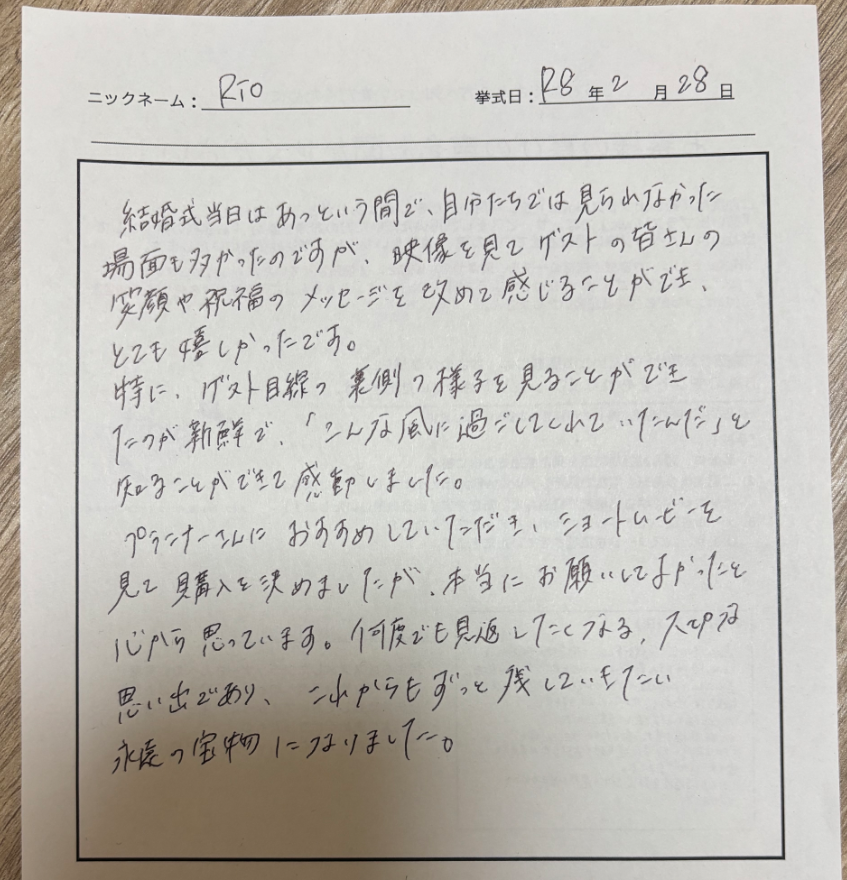 ニックネーム： RIO 挙式日： R8 年 2 月 28 日
結婚式当日はあっという間で、自分たちでは見られなかった
場面も多かったのですが、映像を見てゲストの皆さんの
笑顔や祝福のメッセージを改めて感じることができ、
とても嬉しかったです。
特に、ゲスト目線の裏側の様子を見ることができ
たのが新鮮で、「こんな風に過ごしてくれていたんだ」と
知ることができて感動しました。
プランナーさんにおすすめしていただき、ショートムービーを
見て購入を決めましたが、本当にお願いしてよかったと
心から思っています。何度でも見返したくなる、大切な
思い出であり、これからもずっと残していきたい
永遠の宝物になりました。